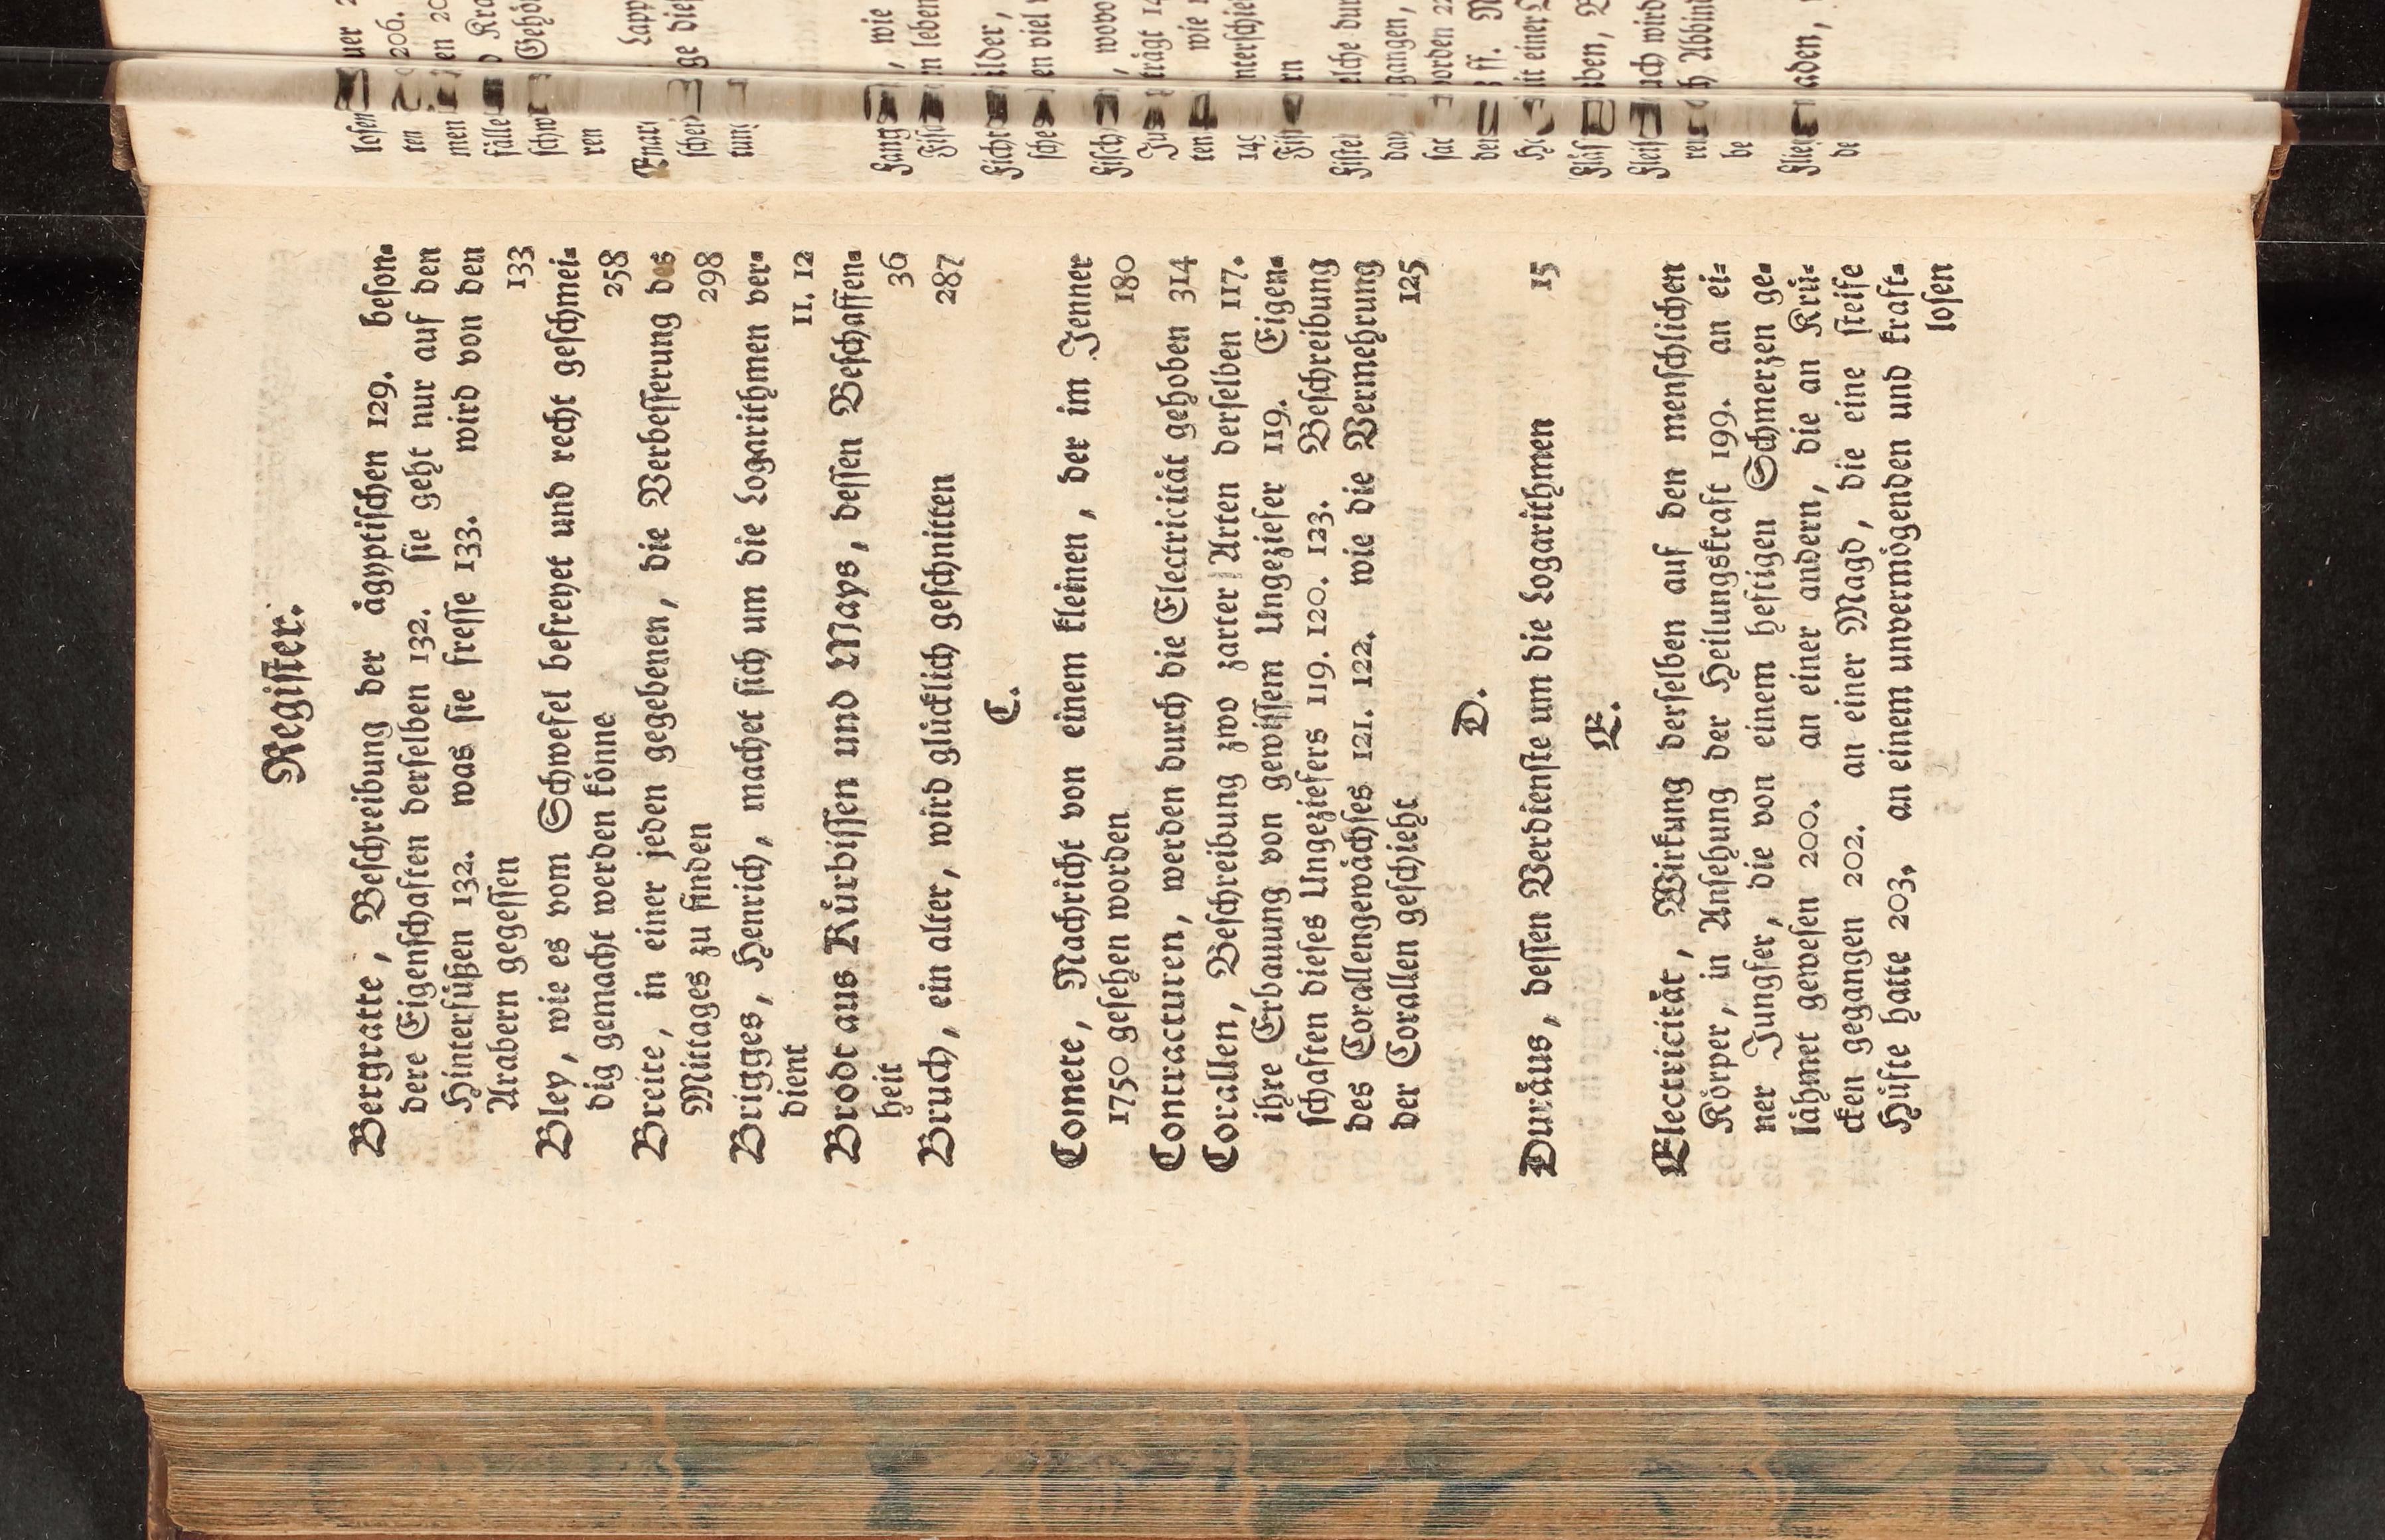 Regiſter.
Bergratte, Beſchreibung der ägyptiſchen 129. beſon-
dere Eigenſchaften derſelben 132. ſie geht nur auf den
Hinterfüßen 132. was ſie freſſe 133. wird von den
Arabern gegeſſen 133
Bley, wie es vom Schwefel befreyet und recht geſchmei-
dig gemacht werden könne 258
Breite, in einer jeden gegebenen, die Verbeſſerung des
Mittages zu finden 298
Brigges, Henrich, machet ſich um die Logarithmen ver-
dient 11. 12
Brodt aus Kürbiſſen und Mays, deſſen Beſchaffen-
heit 36
Bruch, ein alter, wird glücklich geſchnitten 287
C.
Comete, Nachricht von einem kleinen, der im Jenner
1750 geſehen worden 180
Contracturen, werden durch die Electricität gehoben 314
Corallen, Beſchreibung zwo zarter Arten derſelben 117.
ihre Erbauung von gewiſſem Ungeziefer 119. Eigen-
ſchaften dieſes Ungeziefers 119. 120. 123. Beſchreibung
des Corallengewächſes 121. 122. wie die Vermehrung
der Corallen geſchieht 125
D.
Duräus, deſſen Verdienſte um die Logarithmen 15
E.
Electricität, Wirkung derſelben auf den menſchlichen
Körper, in Anſehung der Heilungskraft 199. an ei-
ner Jungfer, die von einem heftigen Schmerzen ge-
lähmet geweſen 200. an einer andern, die an Krü-
cken gegangen 202. an einer Magd, die eine ſteife
Hüfte hatte 203. an einem unvermögenden und kraft-
loſen
loſen
ten 206.
men
fälle
ſchw Gehö
ren
Lapp
Fang, wie
Fiſch, wovo
trägt
wie
worden
ff.
mit einer
Abbind
be
de